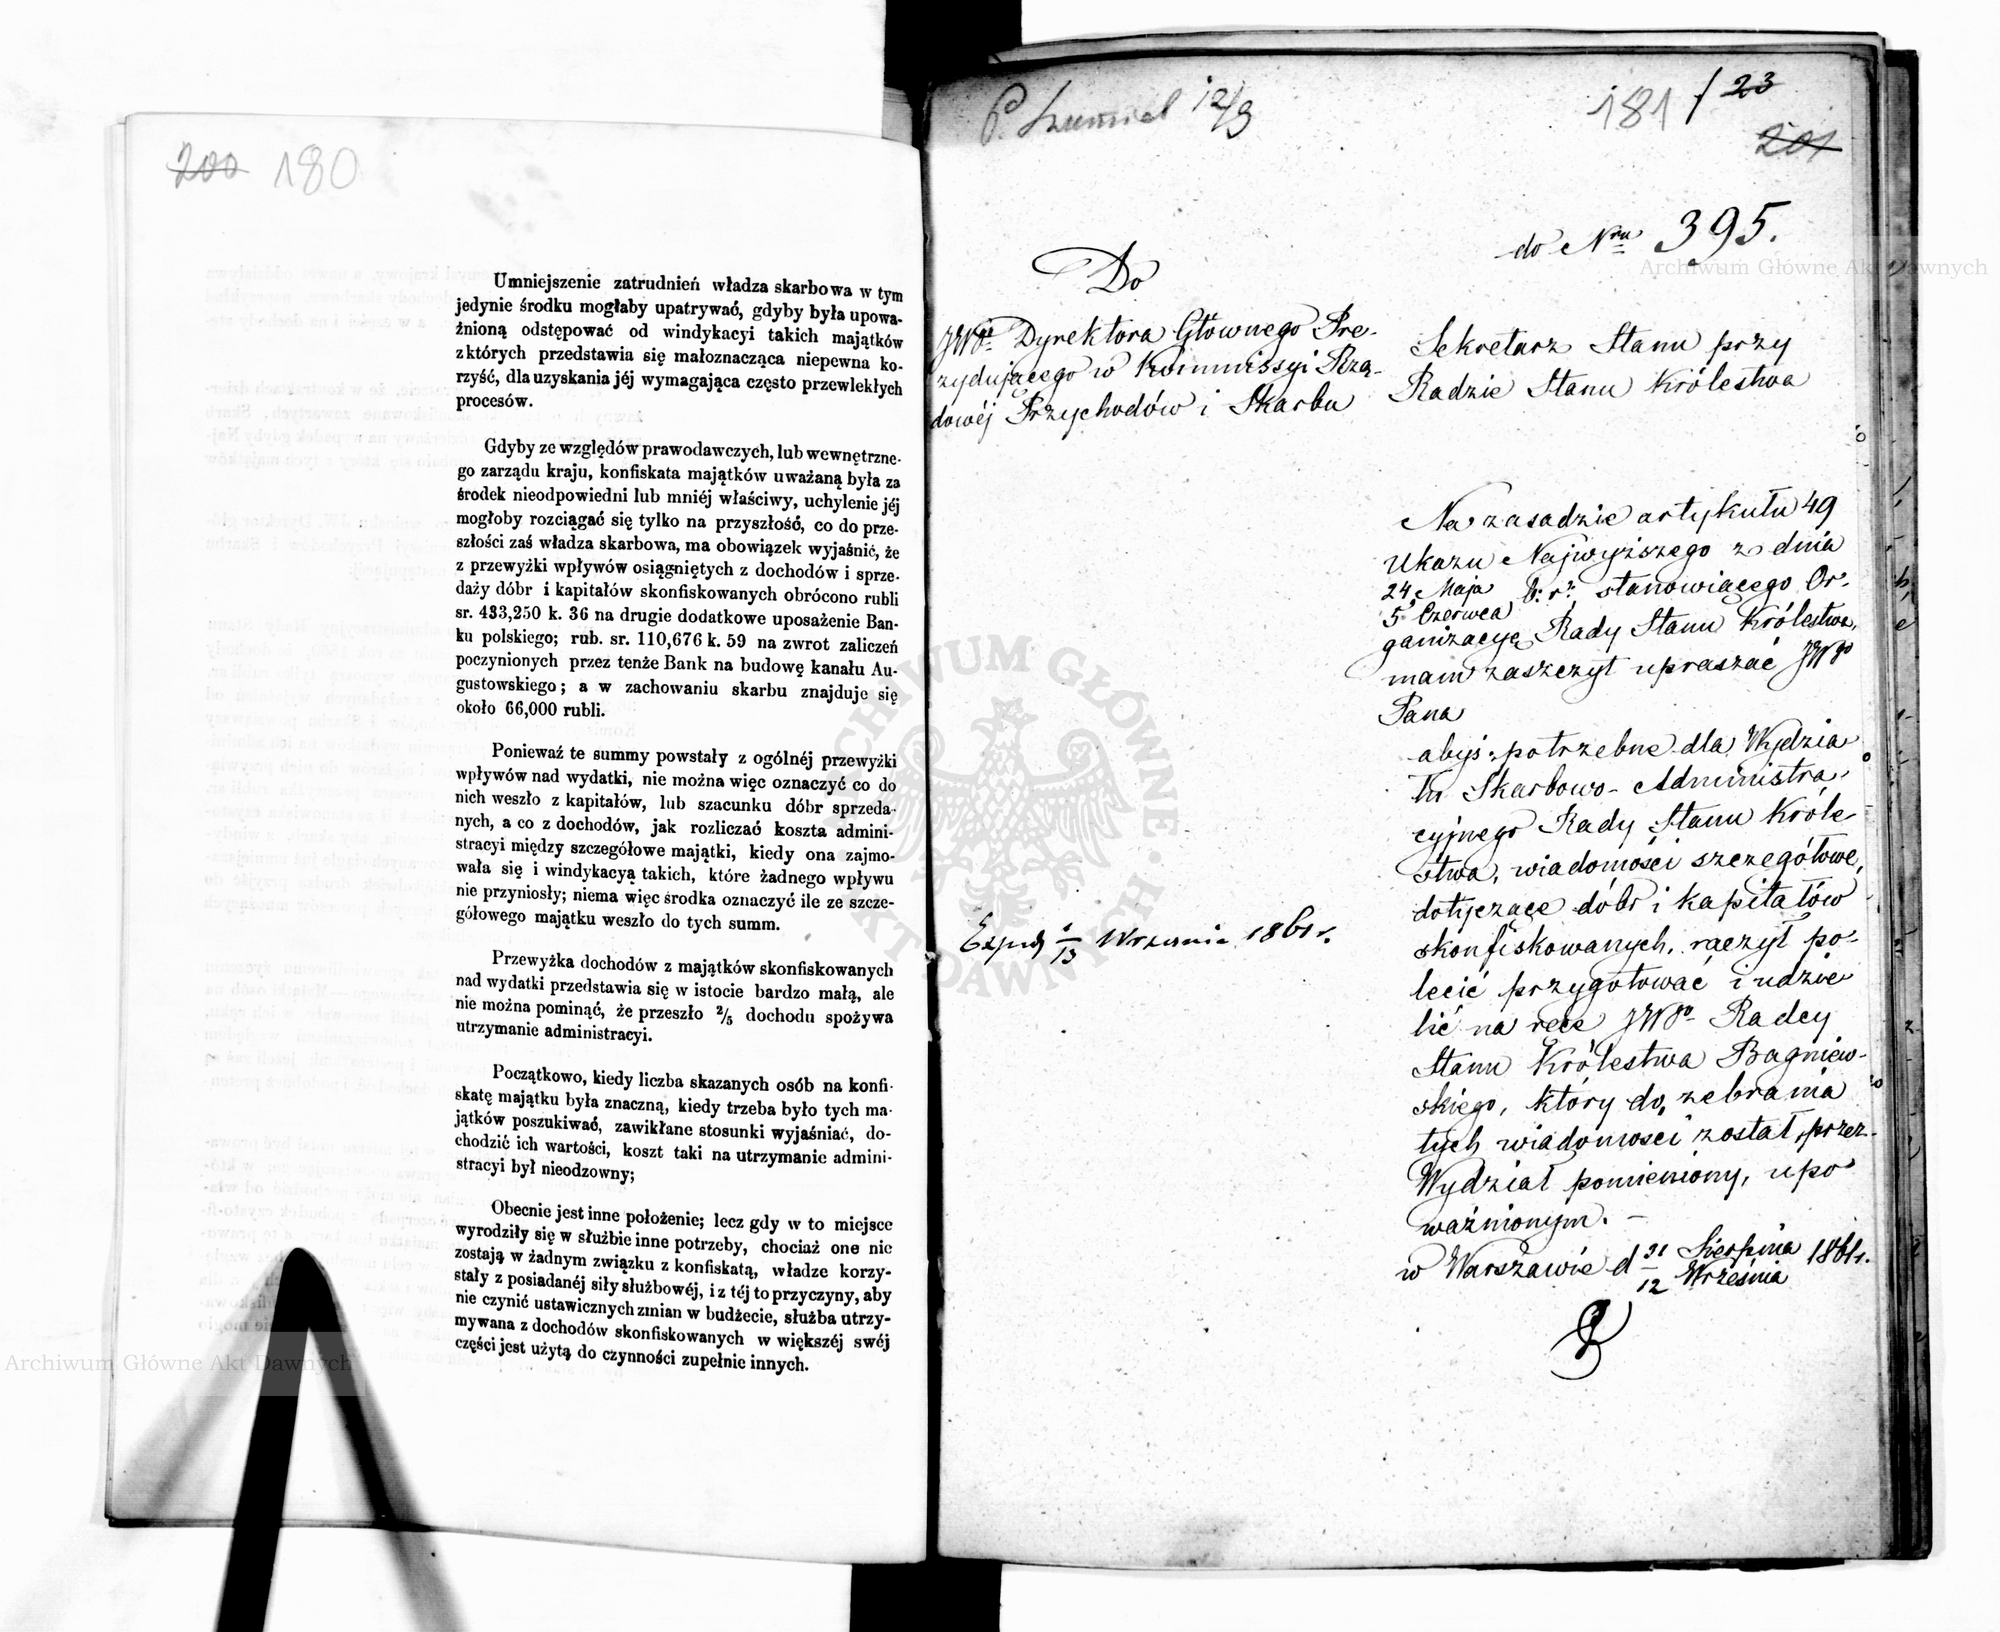 200 180
Umniejszenie zatrudnień władza skarbowa w tym
jedynie środku mogłaby upatrywać, gdyby była upowa-
żnioną odstępować od windykacyi takich majątków
z których przedstawia się małoznacząca niepewna ko-
rzyść, dla uzyskania jéj wymagająca często przewlekłych
procesów.
Gdyby ze względów prawodawczych, lub wewnętrzne-
go zarządu kraju, konfiskata majątków uważaną była za
środek nieodpowiedni lub mniéj właściwy, uchylenie jéj
mogłoby rozciągać się tylko na przyszłość, co do prze-
szłości zaś władza skarbowa, ma obowiązek wyjaśnić, że
z przewyżki wpływów osiągniętych z dochodów i sprze-
daży dóbr i kapitałów skonfiskowanych obrócono rubli
sr. 433,250 k. 36 na drugie dodatkowe uposażenie Ban-
ku polskiego; rub. sr. 110,676 k. 59 na zwrot zaliczeń
poczynionych przez tenże Bank na budowę kanału Au-
gustowskiego; a w zachowaniu skarbu znajduje się
około 66,000 rubli.
Ponieważ te summy powstały z ogólnéj przewyżki
wpływów nad wydatki, nie można więc oznaczyć co do
nich weszło z kapitałów, lub szacunku dóbr sprzeda-
nych, a co z dochodów, jak rozliczać koszta admini-
stracyi między szczegółowe majątki, kiedy ona zajmo-
wała się i windykacyą takich, które żadnego wpływu
nie przyniosły; niema więc środka oznaczyć ile ze szcze-
gółowego majątku weszło do tych summ.
Przewyżka dochodów z majątków skonfiskowanych
nad wydatki przedstawia się w istocie bardzo małą, ale
nie można pominąć, że przeszło 2/5 dochodu spożywa
utrzymanie administracyi.
Początkowo, kiedy liczba skazanych osób na konfi-
skatę majątku była znaczną, kiedy trzeba było tych ma-
jątków poszukiwać, zawikłane stosunki wyjaśniać, do-
chodzić ich wartości, koszt taki na utrzymanie admini-
stracyi był nieodzowny;
Obecnie jest inne położenie; lecz gdy w to miejsce
wyrodziły się w służbie inne potrzeby, chociaż one nie
zostają w żadnym związku z konfiskatą, władze korzy-
stały z posiadanéj siły służbowéj, i z téj to przyczyny, aby
nie czynić ustawicznych zmian w budżecie, służba utrzy-
mywana z dochodów skonfiskowanych w większéj swéj
części jest użytą do czynności zupełnie innych.
P. 12/9
181 / 23
201
do Nru 395.
Do
JWgo Dyrektora Głównego Pre-
zydującego w Kommissyi Rzą-
dowéj Przychodów i Skarbu
Sekretarz Stanu przy
Radzie Stanu Królestwa
Na zasadzie artykułu 49
Ukazu Najwyższego z dnia
24 Maja
5 Czerwca b: r: stanowiącego Or-
ganizacyę Rady Stanu Królestwa,
mam zaszczyt upraszać JWgo
Pana
abyś potrzebne dla Wydzia
łu Skarbowo-Administra-
cyjnego Rady Stanu Króle-
stwa, wiadomości szczegółowe,
dotyczące dóbr i kapitałów
skonfiskowanych, raczył po-
lecić przygotować i udzie
lić na ręce JWgo Radcy
Stanu Królestwa Bagniew-
skiego, który do zebrania
tych wiadomości został przez
Wydział pomieniony, upo
ważnionym. –
w Warszawie d 31 Sierpnia
12 Września 1861 r.
Exped 1/13 Września 1861 r.
Archiwum Główne Akt Dawnych
Archiwum Główne Akt Dawnych
ARCHIWUM GŁÓWNE AKT DAWNYCH